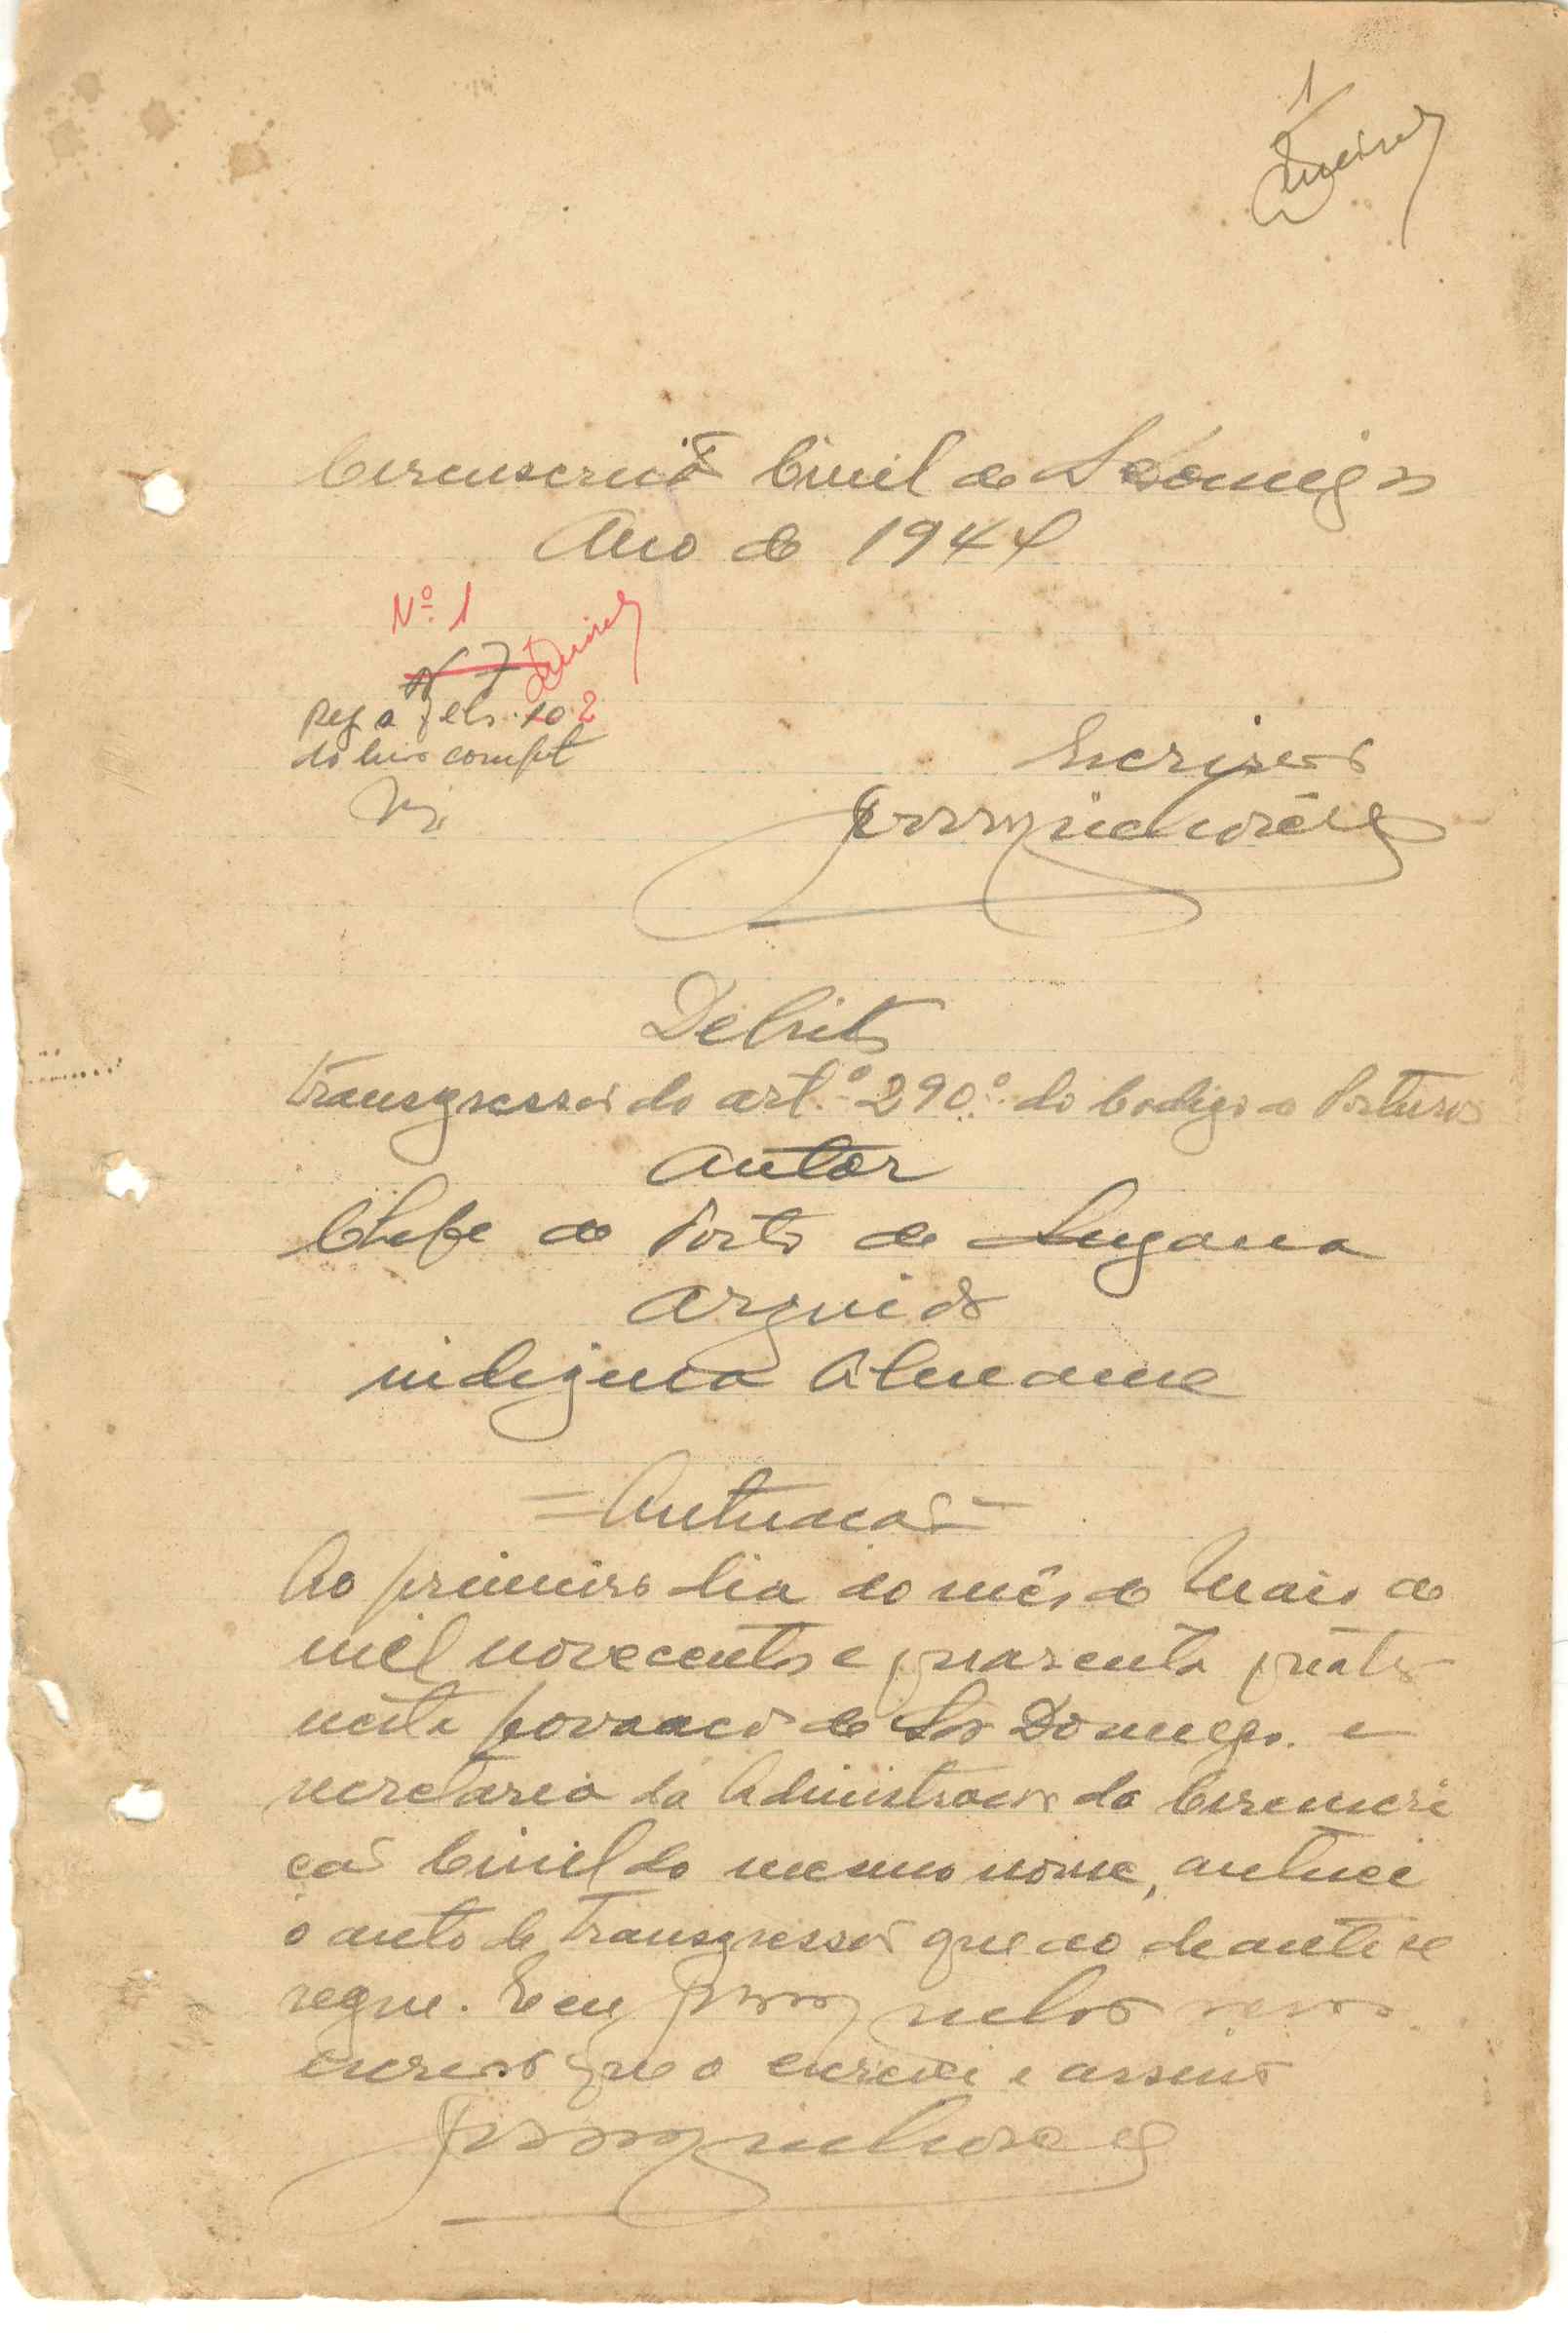 1
Circunscrição Civil de S. Domingos
Ano de 1944
Nº 1
Nº 7
Reg a fls. 10 2
do livro compet
Escrivão
Delito
Transgressão do artº 290º do Codigo de Posturas
Autor
Chefe do Posto de Susana
Arguido
indigena
= Autuação =
Ao primeiro dia do mês de Maio de
mil novecentos e quarenta quatro
nesta povoação de São Domingos e
secretaria da Administração da Circunscri
ção Civil do mesmo nome, autuei
o auto de transgressão que ao deante se
segue. E eu
escrivão que o escrevi e assino